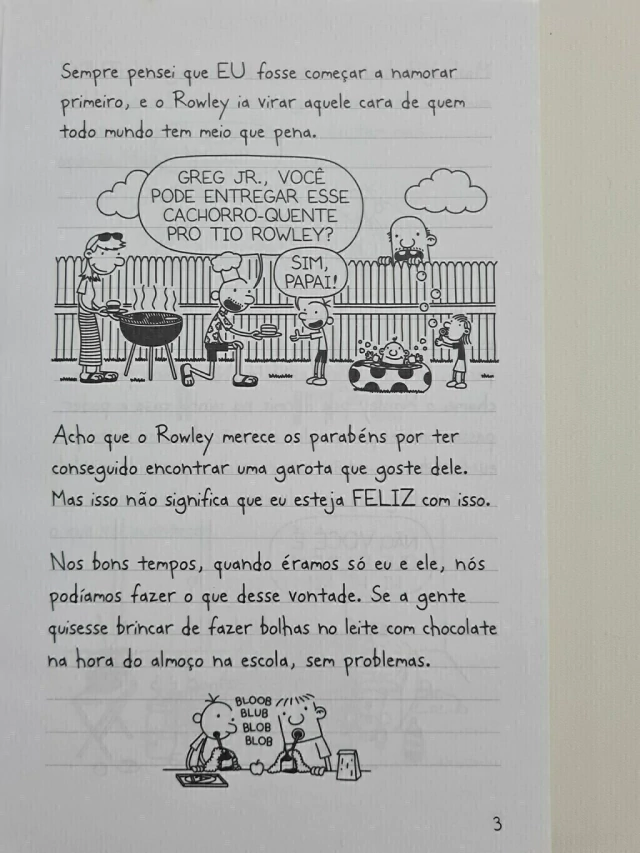 Sempre pensei que EU fosse começar a namorar
primeiro, e o Rowley ia virar aquele cara de quem
todo mundo tem meio que pena.
GREG JR., VOCÊ
PODE ENTREGAR ESSE
CACHORRO-QUENTE
PRO TIO ROWLEY?
SIM,
PAPAI!
Acho que o Rowley merece os parabéns por ter
conseguido encontrar uma garota que goste dele.
Mas isso não significa que eu esteja FELIZ com isso.
Nos bons tempos, quando éramos só eu e ele, nós
podíamos fazer o que desse vontade. Se a gente
quisesse brincar de fazer bolhas no leite com chocolate
na hora do almoço na escola, sem problemas.
BLOOB
BLUB
BLOB
BLOB
3